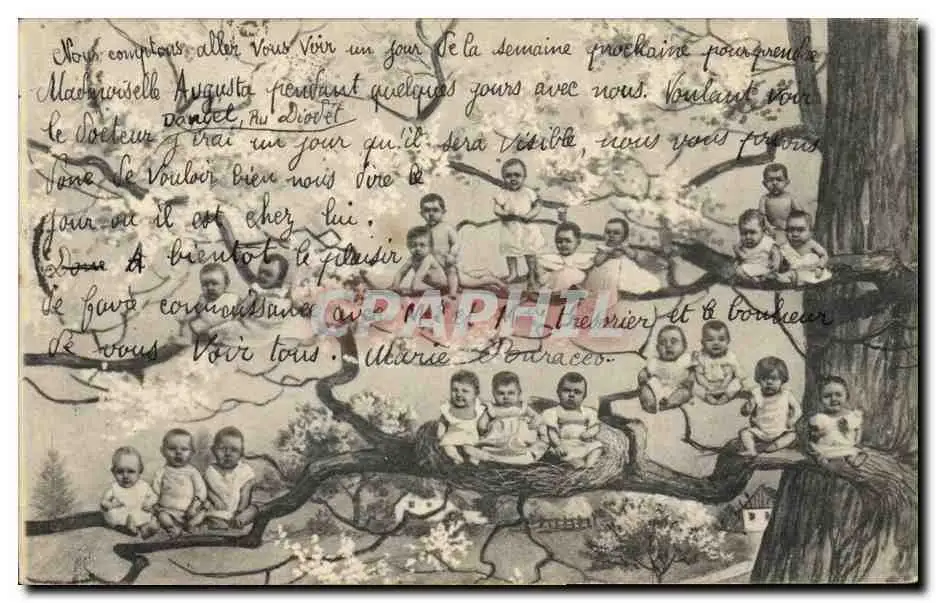 Nous comptons aller vous voir un jour de la semaine prochaine pour prendre
Mademoiselle Augusta pendant quelques jours avec nous. Voulant voir
le docteur Daniel, au Diodet
j'irai un jour qu'il sera visible, nous vous prions
donc de vouloir bien nous dire le
jour ou il est chez lui.
A bientôt le plaisir
de faire connaissance avec Mr et Mme Thessrier et le bonheur
de vous voir tous. Marie
CPAPHIL